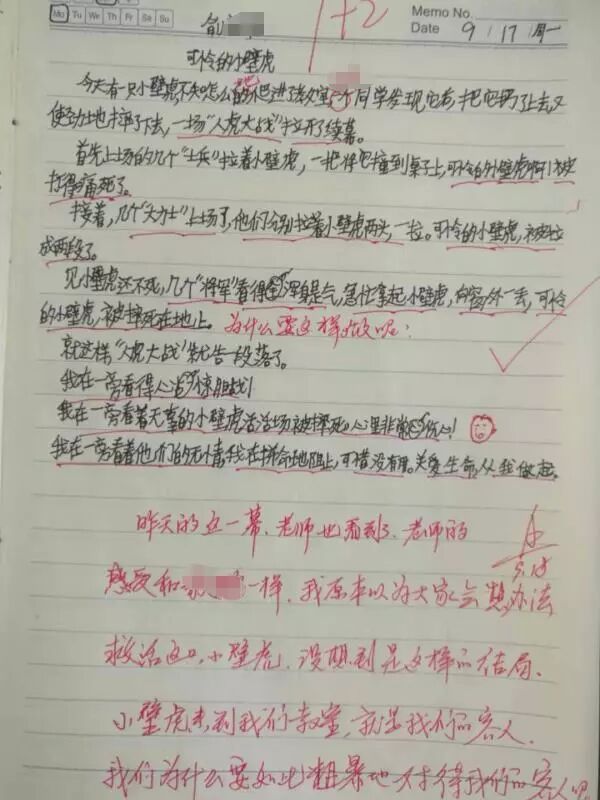 Mo Tu We Th Fr Sa Su
Memo No.
Date 9 / 17 周一
1+2
可怜的小壁虎
今天有一只小壁虎不知怎么的爬进了教室 个同学发现它后,把它扔了上去又
使劲地摔了下去,一场“人虎大战”拉开了续幕。
首先上场的几个“士兵”拉着小壁虎,一把将它撞到桌子上,可怜的小壁虎啊!被
打得痛死了。
接着,几个“大力士”上场了,他们分别拉着小壁虎两头,一拉。可怜的小壁虎,被拉
成两段了。
见小壁虎还不死,几个“将军”看得浑身是气,急忙拿起小壁虎,向窗外一丢,可怜
的小壁虎,被摔死在地上。为什么要这样做呢?
就这样,“人虎大战”就告一段落了。
我在一旁看得心惊胆战!
我在一旁看着无辜的小壁虎活活被摔死。心里非常伤心!
我在一旁看着他们的无情,我在拼命地阻止,可惜没有用。关爱生命,从我做起。
昨天的这一幕,老师也看到了,老师的
感受和 一样,我原本以为大家会想办法
救活这只小壁虎,没想到是这样的结局。
小壁虎来到我们教室,就是我们的客人,
我们为什么要如此粗暴地对待我们的客人呢
9.18